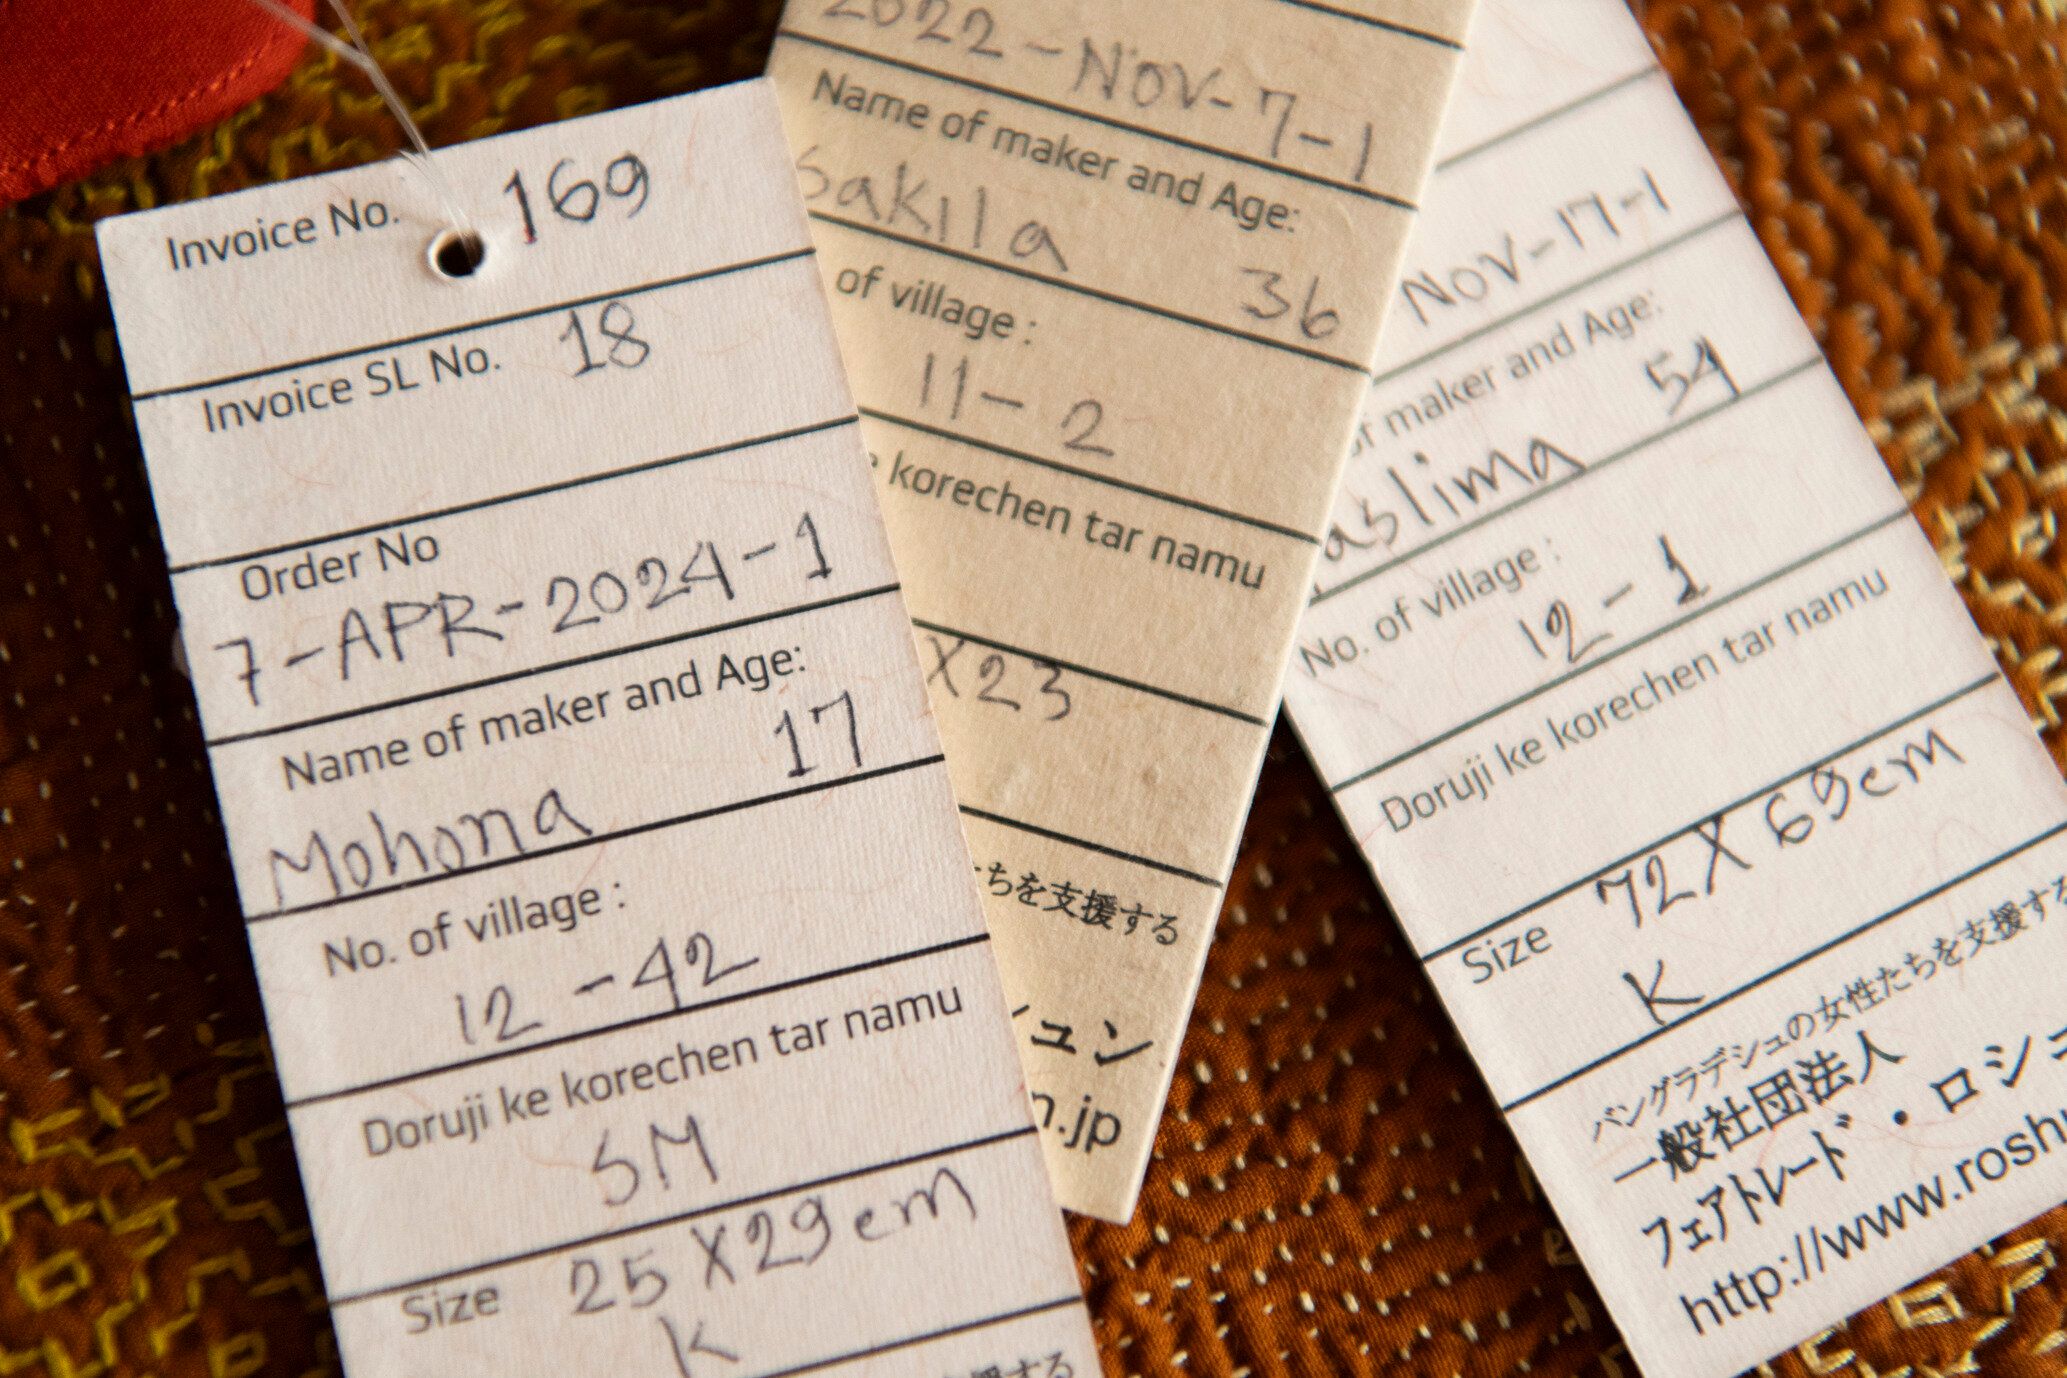 Invoice No. 169
Invoice SL No. 18
Order No
7-APR-2024-1
Name of maker and Age:
17
Mohona
No. of village :
12-42
Doruji ke korechen tar namu
SM
Size 25X29cm
K
援する
2022-Nov-7-1
Name of maker and Age:
Sakila 36
of village :
11-2
korechen tar namu
X23
ちを支援する
ュン
n.jp
Nov-17-1
of maker and Age:
54
aslima
No. of village :
12-1
Doruji ke korechen tar namu
Size 72X69cm
K
バングラデシュの女性たちを支援する
一般社団法人
フェアトレード・ロシュ
http://www.rosh